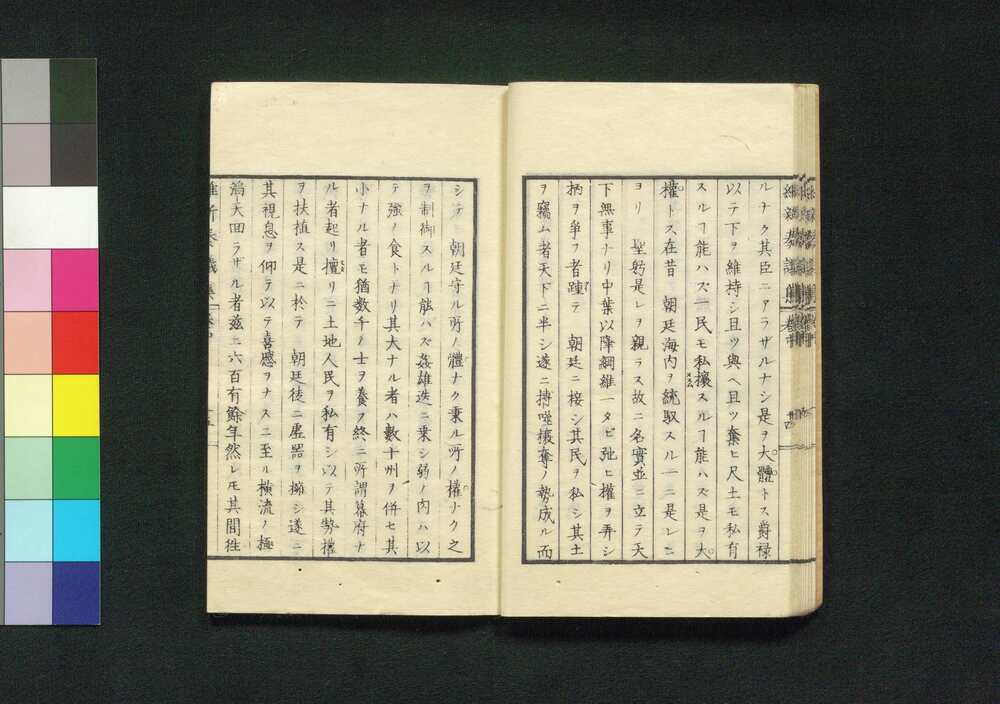 ルナク其臣ニアラザルナシ是ヲ大體トス爵禄
以テ下ヲ維持シ且ツ與ヘ且ツ奪ヒ尺土モ私有
スルヿ能ハズ一民モ私攘スルヿ能ハズ是ヲ大
權トス在昔 朝廷海内ヲ統馭スル一ニ是レニ
ヨリ 聖躬是レヲ親ラス故ニ名實並ニ立テ天
下無事ナリ中葉以降綱維一タビ弛ヒ權ヲ弄シ
柄ヲ爭フ者踵テ 朝廷ニ接シ其民ヲ私シ其土
ヲ竊ム者天下ニ半シ遂ニ搏噬攘奪ノ勢成ル而
シテ 朝廷守ル所ノ體ナク秉ル所ノ權ナク之
ヲ制御スルヿ能ハズ姦雄迭ニ乗シ弱ノ肉ハ以
テ強ノ食トナリ其大ナル者ハ數十州ヲ併セ其
小ナル者モ猶数千ノ士ヲ養フ終ニ所謂幕府ナ
ル者起リ擅リニ土地人民ヲ私有シ以テ其勢權
ヲ扶植ス是ニ於テ 朝廷徒ニ虚器ヲ擁シ遂ニ
其視息ヲ仰テ以テ喜慼ヲナスニ至ル横流ノ極
滔天回ラザル者茲ニ六百有餘年然レモ其間往